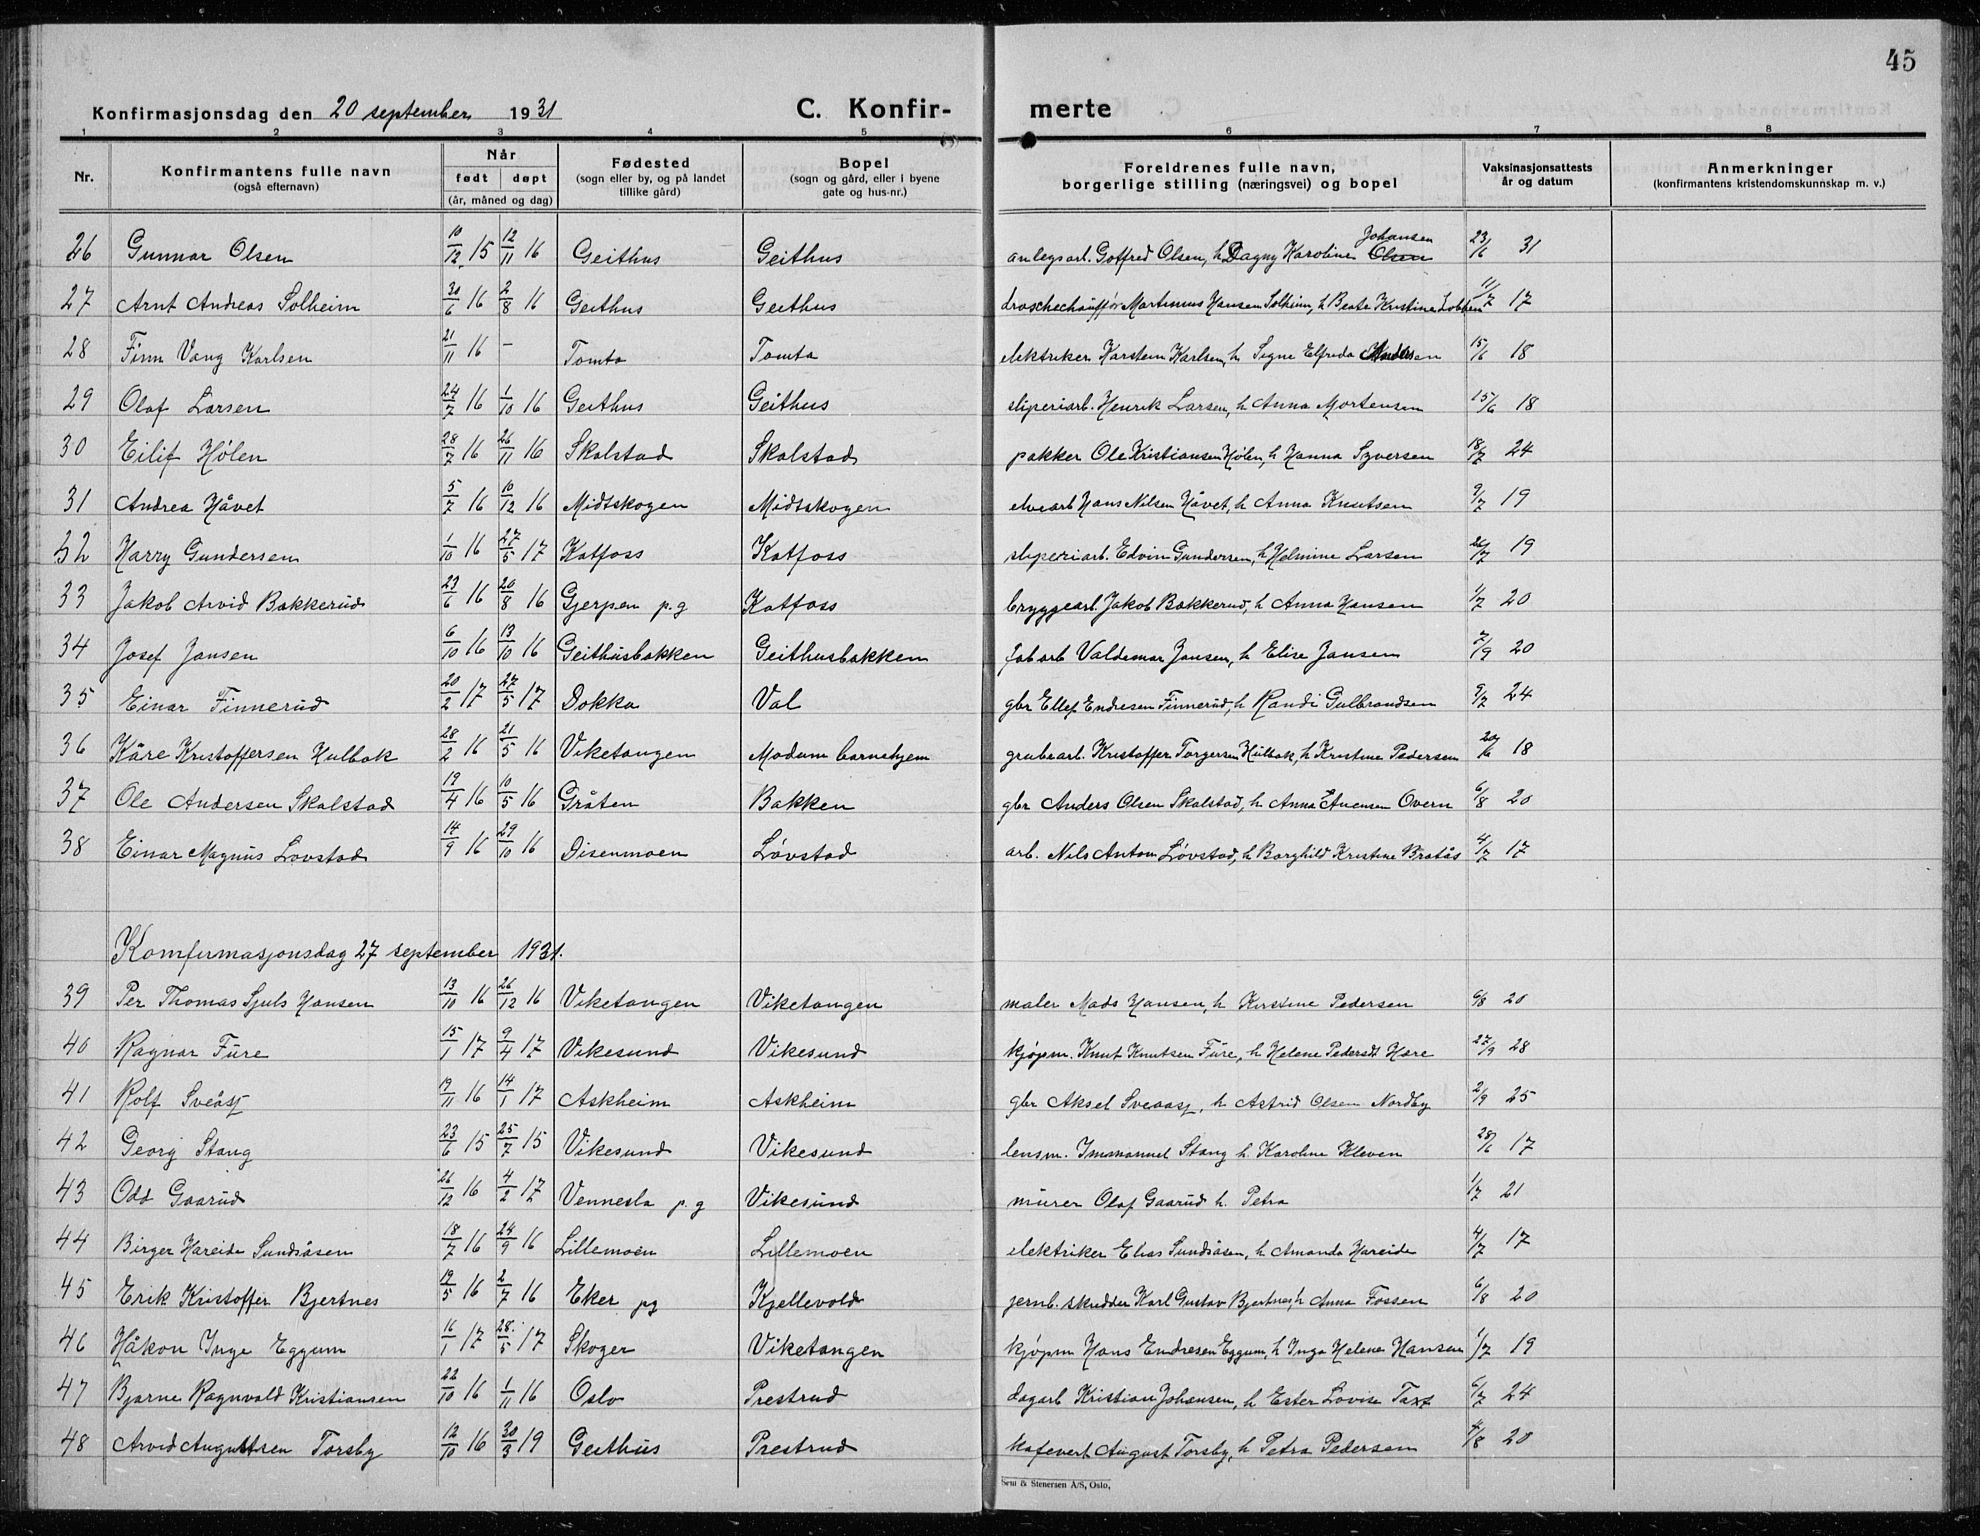 45
Konfirmasjonsdag den 20 september 1931 C. Konfir- merte
1 2 3 4 5 6 7 8
Nr. Konfirmantens fulle navn (også efternavn) Når født døpt (år, måned og dag) Fødested (sogn eller by, og på landet tillike gård) Bopel (sogn og gård, eller i byene gate og hus-nr.) Foreldrenes fulle navn, borgerlige stilling (næringsvei) og bopel Vaksinasjonsattests år og datum Anmerkninger (konfirmantens kristendomskunnskap m. v.)
26 Gunnar Olsen 10/12 15 12/11 16 Geithus Geithus anlegsarb. Gotfred Olsen, h Dagny Karoline Johansen 23/6 31
27 Arnt Andreas Solheim 30/6 16 2/8 16 Geithus Geithus droschechauffør Martinius Hansen Solheim, h Beate Kristine Lobben 11/7 17
28 Finn Vang Karlsen 21/11 16 - Tomta Tomta elektriker Karstein Karlsen, h Signe Elfreda 15/6 18
29 Olaf Larsen 24/7 16 1/10 16 Geithus Geithus sliperiarb. Henrik Larsen, h Anna Mortensen 15/6 18
30 Eilif Hølen 28/7 16 26/11 16 Skalstad Skalstad pakker Ole Kristiansen Hølen, h Hanna Syversen 18/7 24
31 Andrea Håvet 5/7 16 10/12 16 Midtskogen Midtskogen elvearb Hans Nilsen Håvet, h Anna Knutsen 9/7 19
32 Harry Gundersen 1/10 16 27/5 17 Katfoss Katfoss sliperiarb. Edvin Gundersen, h Helmine Larsen 26/7 19
33 Jakob Arvid Bakkerud 23/6 16 20/8 16 Gjerpen p.g Katfoss bryggearb. Jakob Bakkerud, h Anna Hansen 1/7 20
34 Josef Jansen 6/10 16 13/10 16 Geithusbakken Geithusbakken fabarb Valdemar Jansen, h Elise Jansen 7/9 20
35 Einar Finnerud 20/2 17 27/5 17 Dokka Val gbr Ellef Endresen Finnerud, h Randi Gulbrandsen 9/7 24
36 Kåre Kristoffersen Hulbak 28/2 16 21/5 16 Viketangen Modum barnehjem grubearb. Kristoffer Torgersen Hulbak, h Kristine Pedersen 20/6 18
37 Ole Andersen Skalstad 19/4 16 10/5 16 Gråten Bakken gbr Anders Olsen Skalstad, h Anna Evensen Overn 6/8 20
38 Einar Magnus Lovstad 14/9 16 29/10 16 Disenmoen Løvstad arb. Nils Anton Løvstad, h Borghild Kristine Bratås 4/7 17
Komfirmasjonsdag 27 september 1931.
39 Per Thomas Sjuls Hansen 13/10 16 26/12 16 Viketangen Viketangen maler Mads Hansen, h Kirstine Pedersen 6/8 20
40 Ragnar Fure 15/1 17 9/4 17 Vikesund Vikesund kjøpm. Knut Knutsen Fure, h Helene Pedersdt Hære 27/9 28
41 Rolf Sveåss 19/11 16 14/1 17 Askheim Askheim gbr Aksel Sveaass, h Astrid Olsen Nordby 2/9 25
42 Georg Stang 23/6 15 25/7 15 Vikesund Vikesund lensm. Immanuel Stang h. Karoline Kleven 28/6 17
43 Odd Gaarud 26/12 16 4/2 17 Vennesla p.g Vikesund murer Olaf Gaarud h. Petra 1/7 21
44 Birger Hareide Sundsåsen 18/7 16 24/9 16 Lillemoen Lillemoen elektriker Elias Sundsåsen, h Amanda Hareide 4/7 17
45 Erik Kristoffer Bjertnes 19/5 16 2/7 16 Eker pg Kjellevold jernb. skredder Karl Gustav Bjertnes, h Anna Fossen 6/8 20
46 Håkon Inge Eggum 16/1 17 28/5 17 Skoger Viketangen kjøpm Hans Endresen Eggum, h Inga Helene Hansen 1/7 19
47 Bjarne Ragnvald Kristiansen 22/10 16 1/11 16 Oslo Prestrud dagarb Kristian Johansen, h Ester Lovise Taxt 6/7 24
48 Arvid Augustsen Torsby 12/10 16 30/3 19 Geithus Prestrud kafevert August Torsby, h Petra Pedersen 4/8 20
Sem & Stenersen A/S, Oslo,